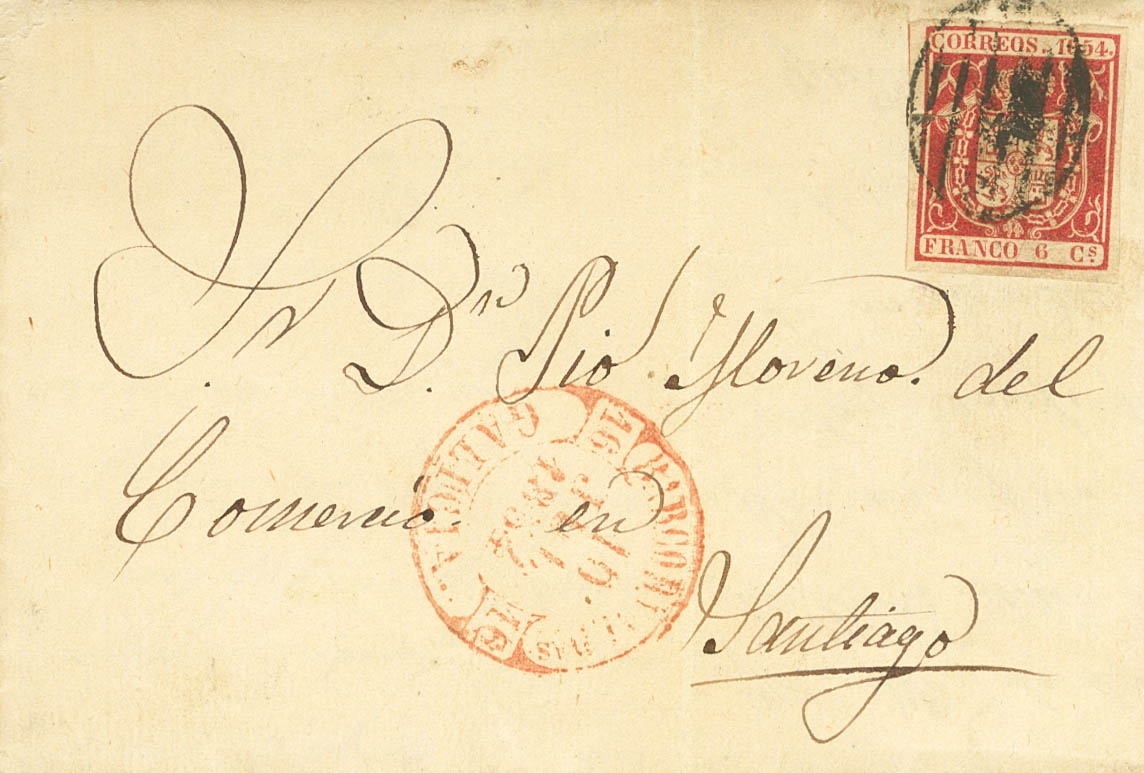 CORREOS. 1854.
FRANCO 6 Cs.
Sr. Dn. Pio Moreno. del
Comercio. en
Santiago
GALICIA.
16